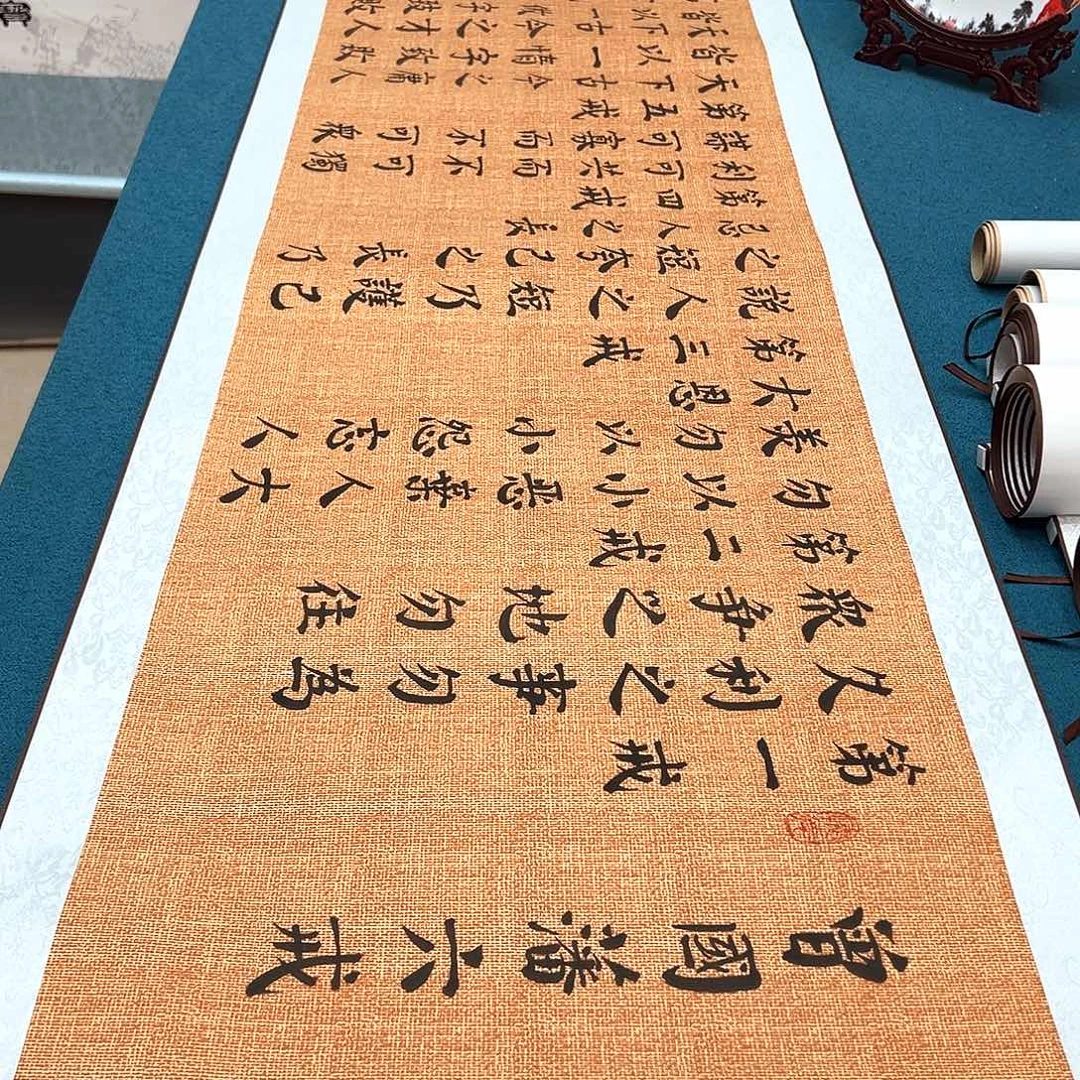 曾國藩六戒
第一戒
久利之事勿為
眾爭之地勿往
第二戒
勿以小惡棄人大
美勿以小怨忘人
大恩
第三戒
說人之短乃護己
之短夸己之長乃
忌人之長
第四戒
利可共而不可獨
謀可寡而不可眾
第五戒
天下古今之庸人
皆以一惰字致敗
天下古今之才人